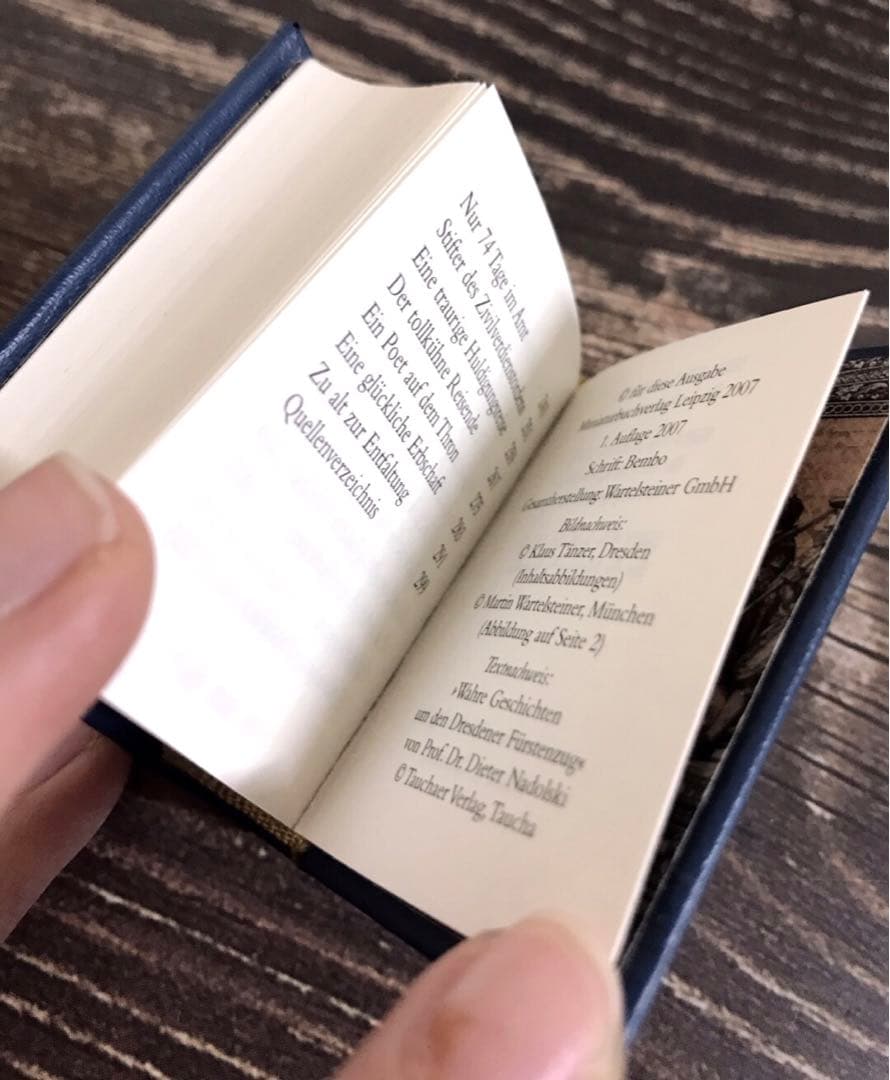 Nur 74 Tage im Amt
Stifter des Zivilverdienstordens
Eine traurige Huldigungsreise
Der tollkühne Reisende
Ein Poet auf dem Thron
Eine glückliche Erbschaft 290
Zu alt zur Entfaltung 291
Quellenverzeichnis 299
© für diese Ausgabe
Miniaturbuchverlag Leipzig 2007
1. Auflage 2007
Schrift: Bembo
Gesamtherstellung: Wartelsteiner GmbH
Bildnachweis:
© Klaus Tänzer, Dresden
(Inhaltsabbildungen)
© Martin Wartelsteiner, München
(Abbildung auf Seite 2)
Textnachweis:
»Wahre Geschichten
um den Dresdener Fürstenzug«
von Prof. Dr. Dieter Nadolski
© Tauchaer Verlag, Taucha